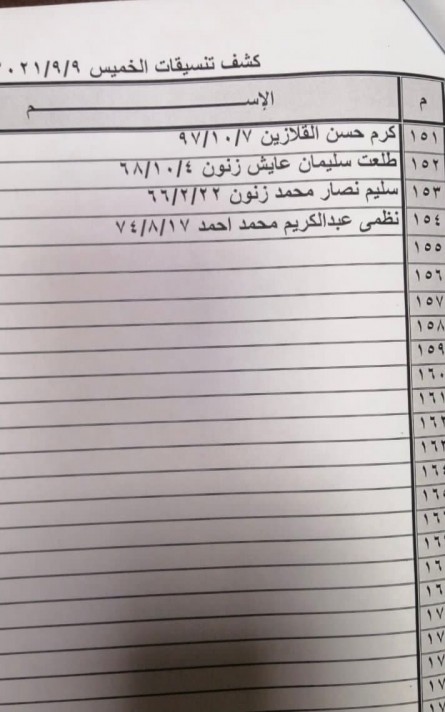 كشف تنسيقات الخميس ٢٠٢١/٩/٩
م الإســـــــم
١٥١ كرم حسن القلازين ٩٧/١٠/٧
١٥٢ طلعت سليمان عايش زنون ٦٨/١٠/٤
١٥٣ سليم نصار محمد زنون ٦٦/٢/٢٢
١٥٤ نظمى عبدالكريم محمد احمد ٧٤/٨/١٧
١٥٥
١٥٦
١٥٧
١٥٨
١٥٩
١٦٠
١٦١